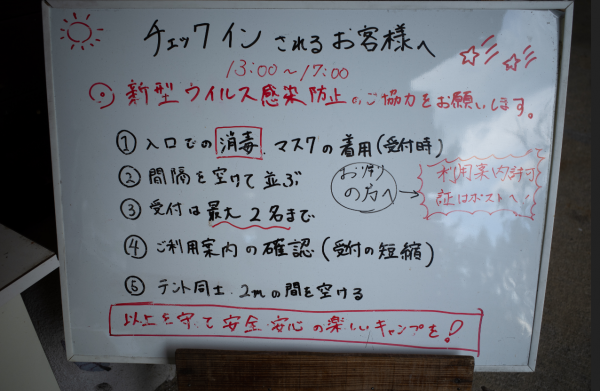 チェックインされるお客様へ
13:00～17:00
新型ウイルス感染防止のご協力をお願いします。
① 入口での消毒.マスクの着用(受付時)
② 間隔を空けて並ぶ
③ 受付は最大2名まで
④ ご利用案内の確認(受付の短縮)
⑤ テント同士.2mの間を空ける
お帰りの方へ→
利用案内許可証はポストへ!
以上を守って安全.安心の楽しいキャンプを!